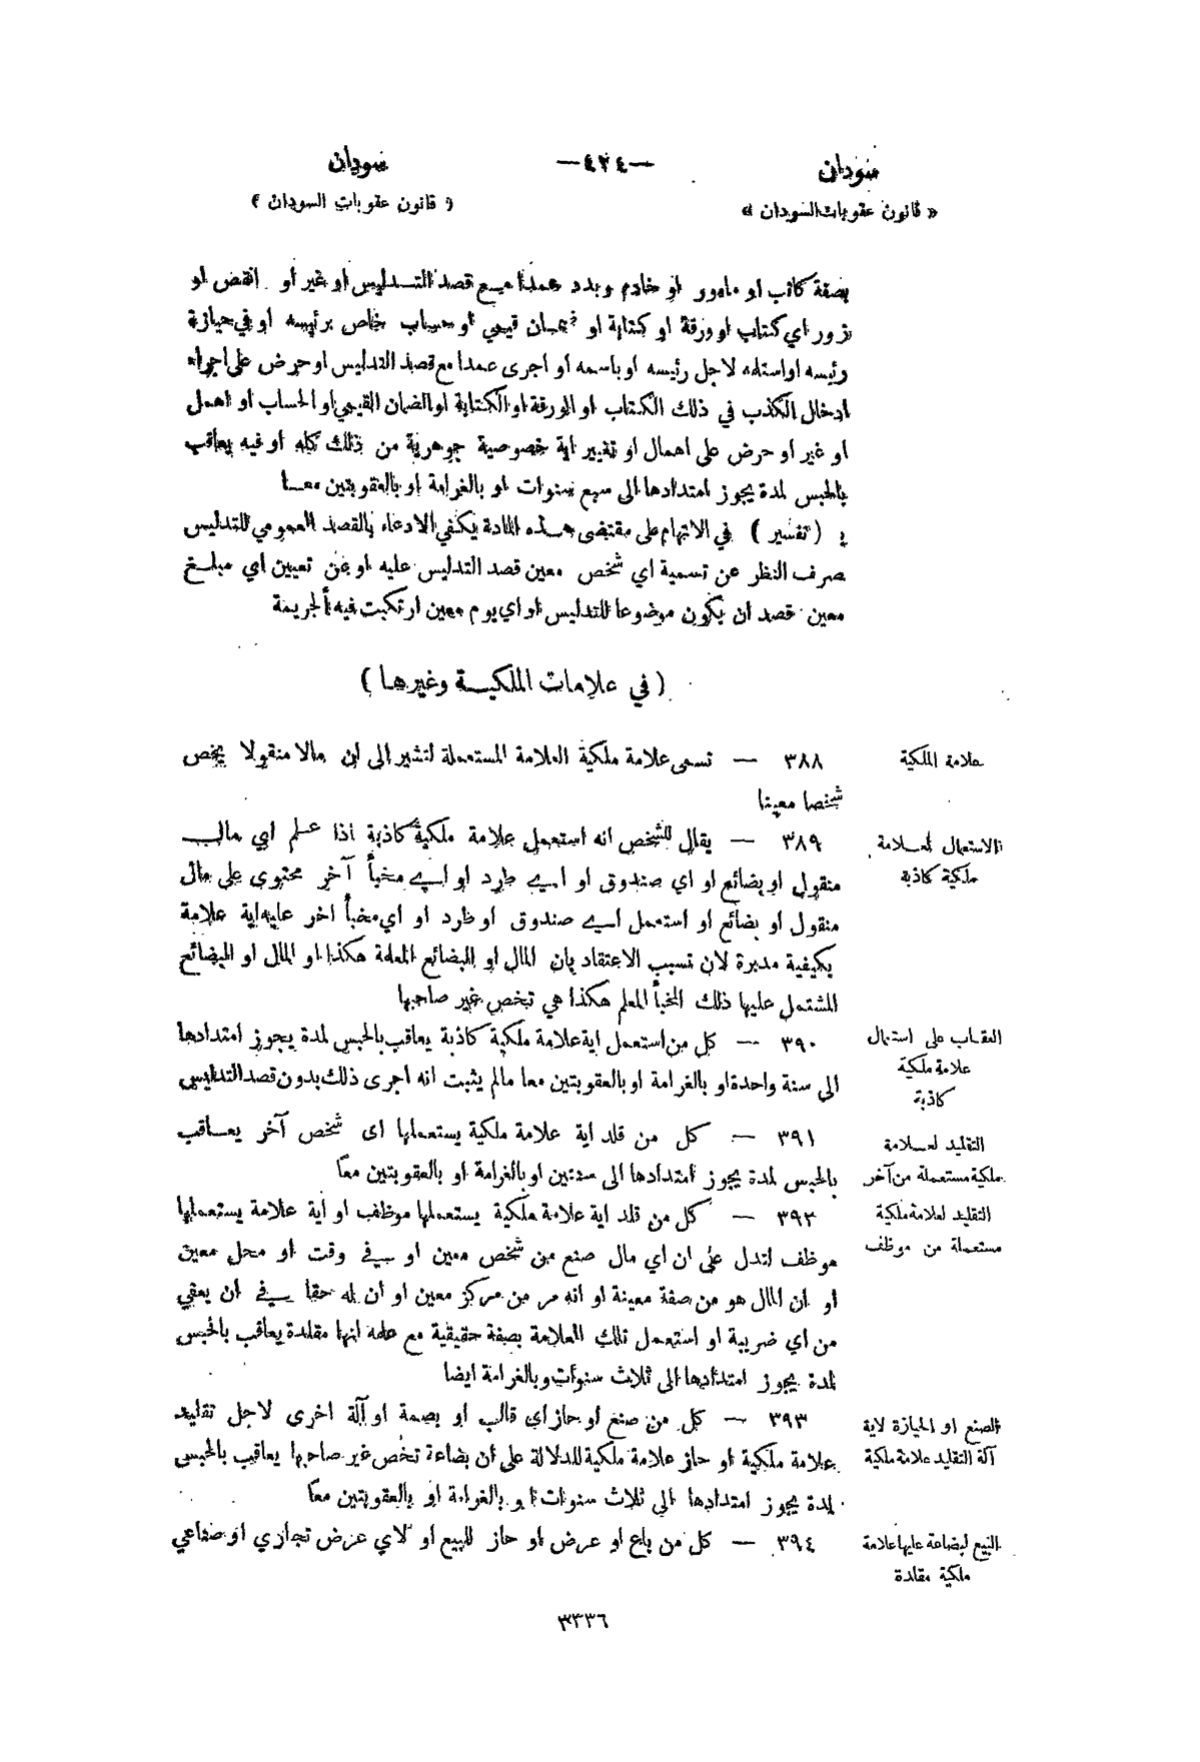 سودان —٤٢٤— سودان
« قانون عقوبات السودان » ( قانون عقوبات السودان )
بصفة كاتب او مامور او خادم وبدد عمدا مع قصد التدليس او غير او انقض او
زور اي كتاب او ورقة او كتابة او ضمان قيمي او حساب خاص برئيسه او في حيازة
رئيسه او استلمه لاجل رئيسه او باسمه او اجرى عمدا مع قصد التدليس او حرض على اجراء
ادخال الكذب في ذلك الكتاب او الورقة او الكتابة او الضمان القيمي او الحساب او اهمل
او غير او حرض على اهمال او تغيير اية خصوصية جوهرية من ذلك كله او فيه يعاقب
بالحبس لمدة يجوز امتدادها الى سبع سنوات او بالغرامة او بالعقوبتين معا
( تفسير ) في الاتهام على مقتضى هذه المادة يكفي الادعاء بالقصد العمومي للتدليس
صرف النظر عن تسمية اي شخص معين قصد التدليس عليه او عن تعيين اي مبلغ
معين قصد ان يكون موضوعا للتدليس او اي يوم معين ارتكبت فيه الجريمة
( في علامات الملكية وغيرها )
علامة الملكية
٣٨٨ — تسمى علامة ملكية العلامة المستعملة لتشير الى ان مالا منقولا يخص
شخصا معينا
الاستعمال لعلامة
ملكية كاذبة
٣٨٩ — يقال للشخص انه استعمل علامة ملكية كاذبة اذا علم اي مال
منقول او بضائع او اي صندوق او اي طرد او اي مخبأ آخر محتوى على مال
منقول او بضائع او استعمل اي صندوق او طرد او اي مخبأ اخر عليه اية علامة
بكيفية مدبرة لان تسبب الاعتقاد بان المال او البضائع المعلمة هكذا او المال او البضائع
المشتمل عليها ذلك المخبأ المعلم هكذا هي تخص غير صاحبها
العقاب على استعمال
علامة ملكية
كاذبة
٣٩٠ — كل من استعمل اية علامة ملكية كاذبة يعاقب بالحبس لمدة يجوز امتدادها
الى سنة واحدة او بالغرامة او بالعقوبتين معا مالم يثبت انه اجرى ذلك بدون قصد التدليس
التقليد لعلامة
ملكية مستعملة من آخر
٣٩١ — كل من قلد اية علامة ملكية يستعملها اى شخص آخر يعاقب
بالحبس لمدة يجوز امتدادها الى سنتين او بالغرامة او بالعقوبتين معًا
التقليد لعلامة ملكية
مستعملة من موظف
٣٩٢ — كل من قلد اية علامة ملكية يستعملها موظف او اية علامة يستعملها
موظف لتدل على ان اي مال صنع من شخص معين او في وقت او محل معين
او ان المال هو من صفة معينة او انه مر من مركز معين او ان له حقا في ان يعفي
من اي ضريبة او استعمل تلك العلامة بصفة حقيقية مع علمه انها مقلدة يعاقب بالحبس
لمدة يجوز امتدادها الى ثلاث سنوات وبالغرامة ايضا
الصنع او الحيازة لاية
آلة التقليد علامة ملكية
٣٩٣ — كل من صنع او حاز اي قالب او بصمة او آلة اخرى لاجل تقليد
علامة ملكية او حاز علامة ملكية للدلالة على ان بضاعة تخص غير صاحبها يعاقب بالحبس
لمدة يجوز امتدادها الى ثلاث سنوات او بالغرامة او بالعقوبتين معًا
البيع لبضاعة عليها علامة
ملكية مقلدة
٣٩٤ — كل من باع او عرض او حاز للبيع او لاي عرض تجاري او صناعي
٣٣٣٦